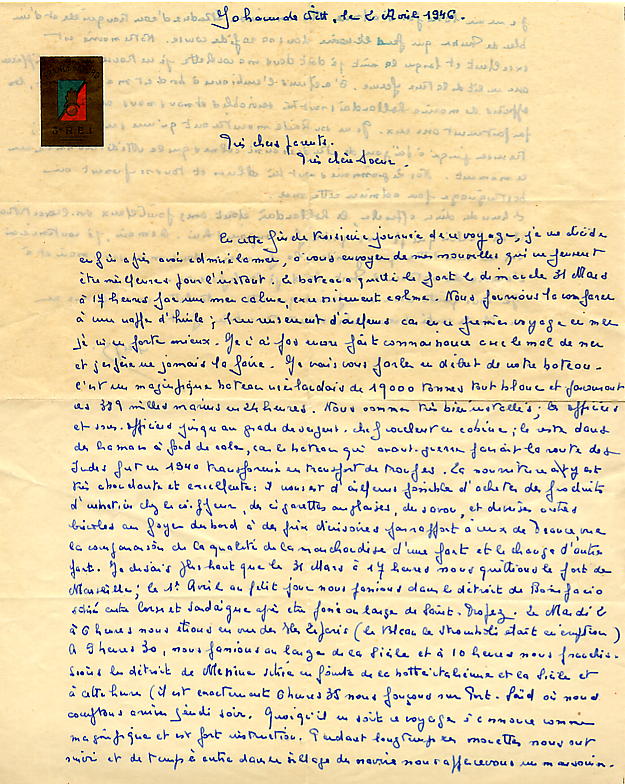 Johan de Witt, le 2 Avril 1946.
3e R.E.I.
Très chers parents.
Très chère Soeur.
En cette fin de troisième journée de voyage, je me décide
enfin après avoir admiré la mer, à vous envoyer de mes nouvelles qui ne peuvent
être meilleures pour l'instant : le bateau a quitté le port le dimanche 31 Mars
à 17 heures par une mer calme, excessivement calme. Nous pouvions la comparer
à une nappe d'huile ; heureusement d'ailleurs car ce premier voyage en mer
je n'ai pas encore fait connaissance avec le mal de mer
et j'espère ne jamais la faire. Je vais vous parler en début de notre bateau.
C'est un magnifique bateau néerlandais de 19000 tonnes tout blanc et parcourant
ses 389 milles marins en 24 heures. Nous sommes très bien installés ; les officiers
et sous-officiers jusqu'au grade de sergent-chef couchent en cabine ; le reste dans
des hamacs à fond de cale, car le bateau qui avant-guerre faisait la route des
Indes fut en 1940 transformé en transport de troupes. La nourriture y est
très abondante et excellente : il nous est d'ailleurs possible d'acheter des produits
d'entretien chez le coiffeur, des cigarettes anglaises, du savon, et diverses autres
bricoles au foyer du bord à des prix dérisoires par rapport à ceux de France, vue
la comparaison de la qualité de la marchandise d'une part et le change d'autre
part. Je disais plus haut que le 31 Mars à 17 heures nous quittions le port de
Marseille ; le 1er Avril au petit jour nous passions dans le détroit de Bonifacio
situé entre Corse et Sardaigne après être passé au large de Saint-Tropez. Le Mardi 2
à 6 heures nous étions en vue des Iles Liparis (le Volcan le Stromboli était en éruption)
A 9 heures 30, nous passions au large de la Sicile et à 10 heures nous franchis-
sions le détroit de Messine situé en pointe de la botte italienne et la Sicile et
à cette heure (il est exactement 6 heures 35 nous fonçons sur Port-Saïd où nous
comptons arriver jeudi soir. Quoiqu'il en soit ce voyage s'annonce comme
magnifique et est fort instructif. Pendant longtemps les mouettes nous ont
suivi et de temps à autre dans le sillage du navire nous apercevons un marsouin.